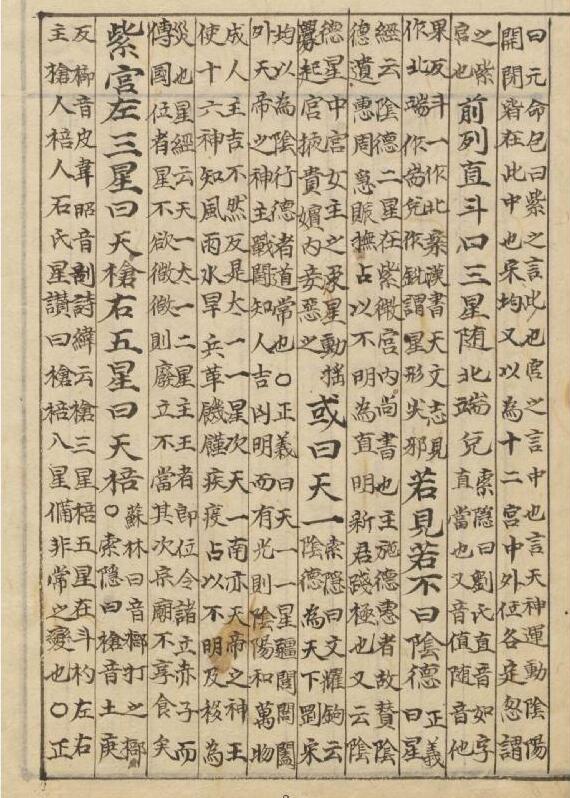 曰元命包曰紫之言此也宮之言中也言天神運動陰陽
開閉皆在此中也宋均又以為十二宮中外位各定忽謂
之紫
宮也
前列直斗口三星随北端兊
索隱曰劉氏直音如字
直當也又音值随音他
果反斗一作北案漢書天文志見
作北端作耑兊作銳謂星形尖邪
若見若不曰陰德
正義
曰星
經云陰德二星在紫微宮內尚書也主施德惠者故賛陰
德遺惠周急賑撫占以不明為直明新君踐極也又云陰
德星中宮女主之象星動揺
釁起宮掖貴嬪內妾惡之
或曰天一
索隱曰文耀鉤云
陰德為天下罡宋
均以為陰行德者道常也○正義曰天一一星疆閶闔
外天帝之神主戰鬪知人吉凶明而有光則陰陽和萬物
成人主吉不然反是太一一星次天一南亦天帝之神主
使十六神知風雨水旱兵革饑饉疾疫占以不明及移為
災也星經云天一太一二星主王者即位令諸立赤子而
傳國位者星不欲微微則廢立不當其次宗廟不享食矣
紫宮左三星曰天槍右五星曰天棓○
蘇林曰音榔打之榔
索隱曰槍音土庚
反榔音皮韋昭音剖詩緯云槍三星棓五星在斗杓左右
主槍人棓人石氏星讃曰槍棓八星備非常之變也○正